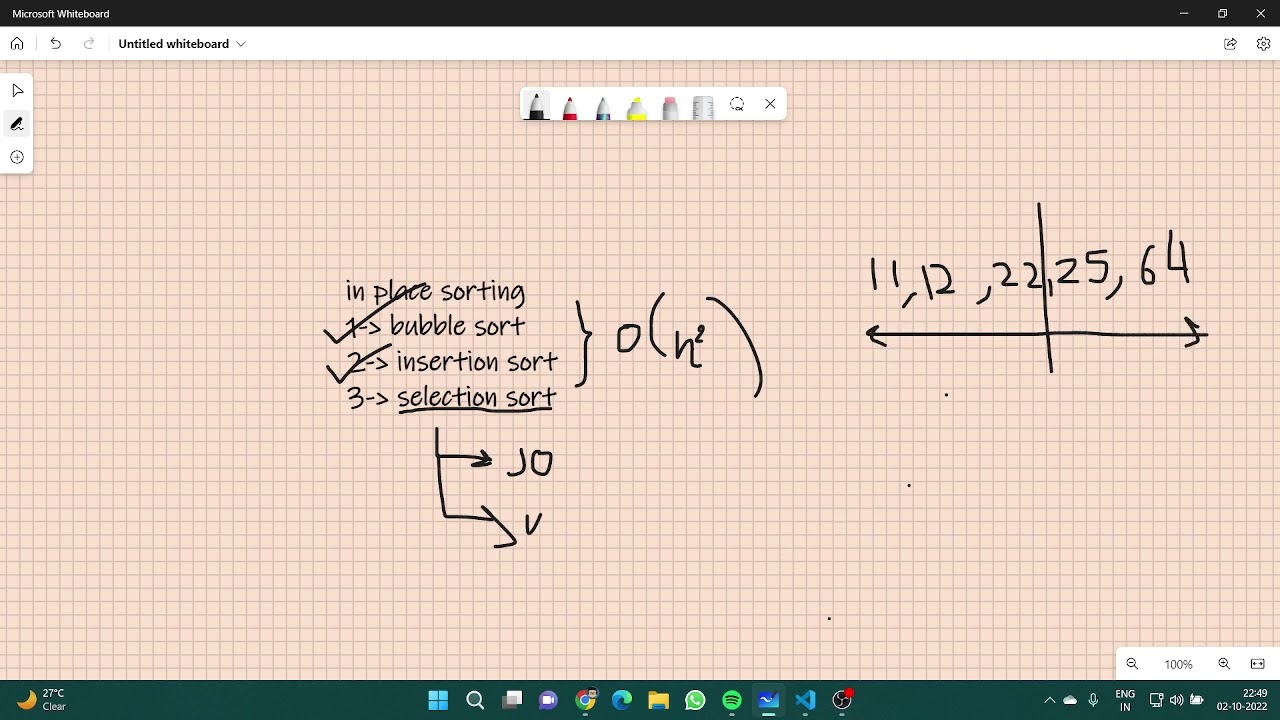 Microsoft Whiteboard
Untitled whiteboard
11, 12, 22, 25, 64
in place sorting
1-> bubble sort
2-> insertion sort
3-> selection sort
O(n²)
JO
V
100%
27°C
Clear
ENG
IN
22:49
02-10-2022